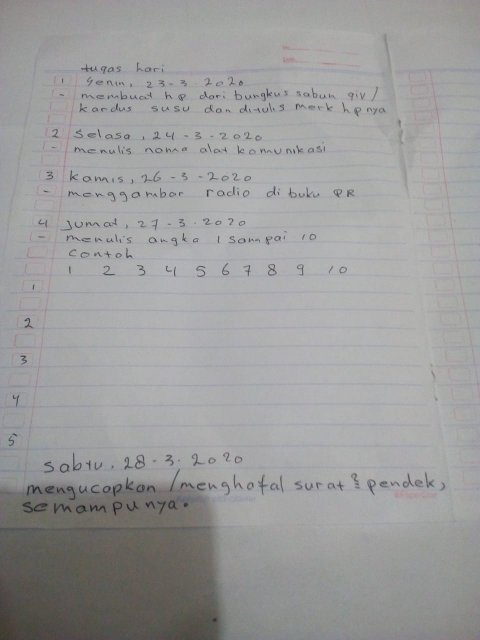 tugas hari
1 Senin, 23-3-2020
- membuat hp dari bungkus sabun giv/
kardus susu dan ditulis merk hpnya
2 Selasa, 24-3-2020
- menulis nama alat komunikasi
3 kamis, 26-3-2020
- menggambar radio di buku PR
4 Jumat, 27-3-2020
- menulis angka 1 sampai 10
Contoh
1 2 3 4 5 6 7 8 9 10
1
2
3
4
5
sabtu, 28-3-2020
mengucapkan/menghafal surat² pendek,
semampunya.